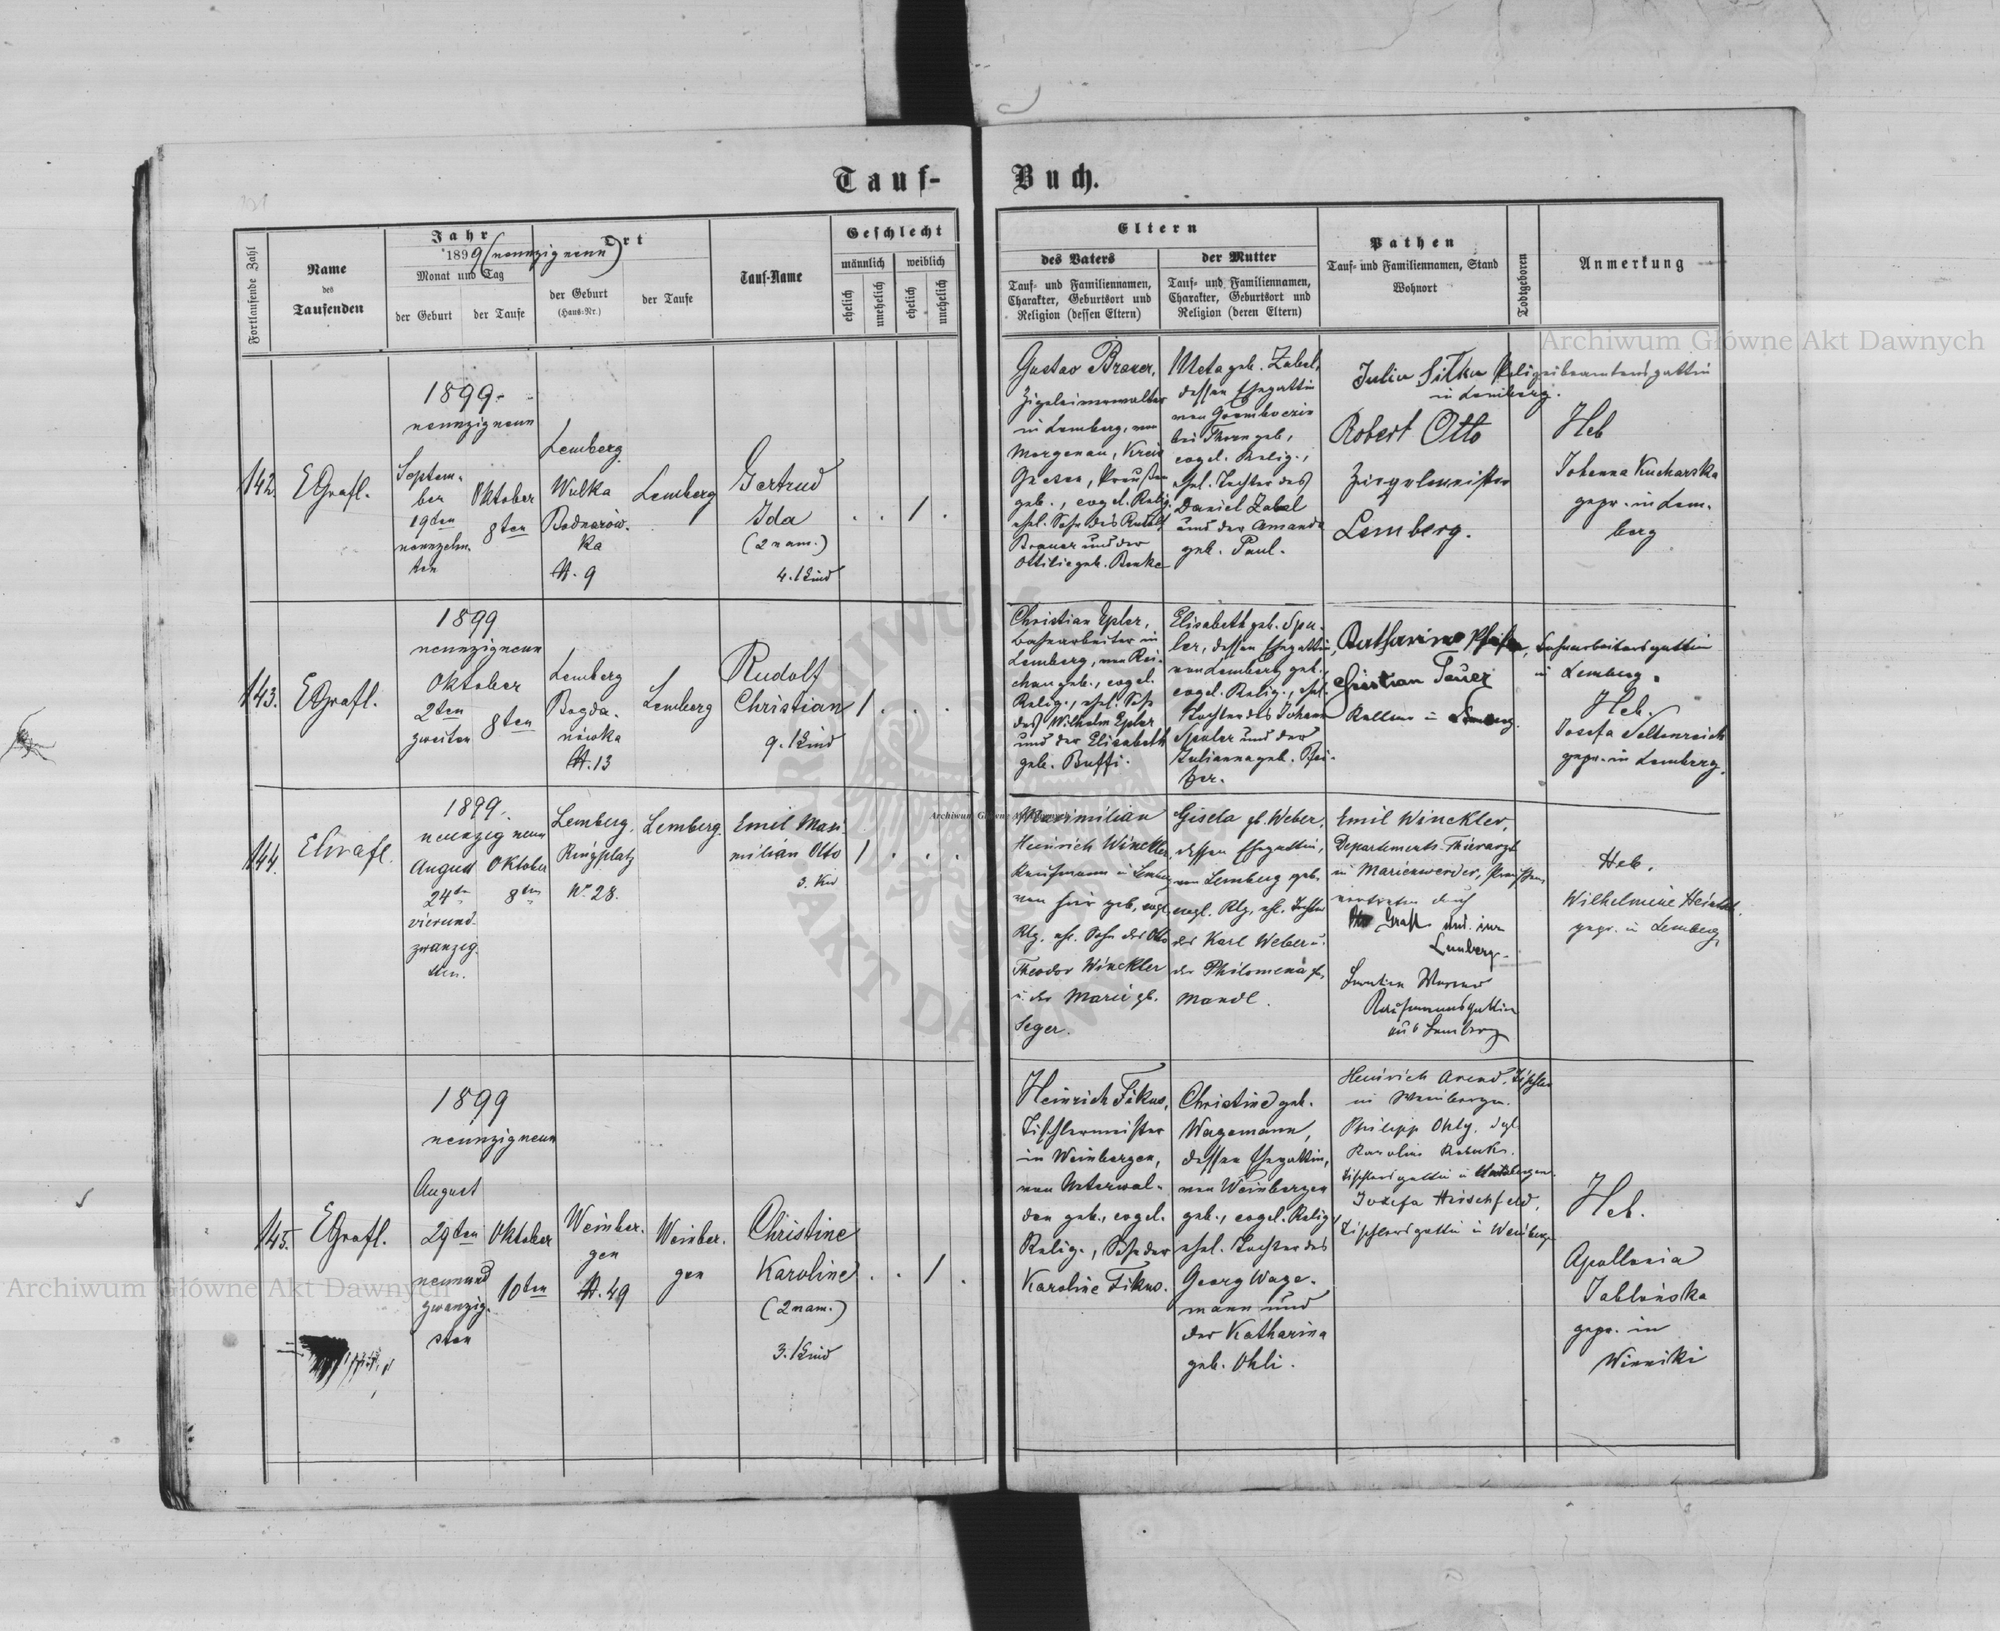 Tauf-Buch.
Fortlaufende Zahl
Name
des
Taufenden
Jahr
1899 (neunzigneun)
Monat und Tag
der Geburt
der Taufe
Ort
der Geburt
(Haus-Nr.)
der Taufe
Tauf-Name
Geschlecht
männlich
weiblich
ehelich
unehelich
ehelich
unehelich
Eltern
des Vaters
Tauf- und Familiennamen,
Charakter, Geburtsort und
Religion (dessen Eltern)
der Mutter
Tauf- und Familiennamen,
Charakter, Geburtsort und
Religion (deren Eltern)
Pathen
Tauf- und Familiennamen, Stand
Wohnort
Todtgeboren
Anmerkung
Archiwum Główne Akt Dawnych
142.
EGrafl.
1899.-
neunzigneun
Septem-
ber
19ten
neunzehn-
ten
Oktober
8ten
Lemberg
Wulka
Bodnarów-
ka
N. 9
Lemberg
Gertrud
Ida
(2 nam.)
4. Kind
. . 1 .
Gustav Brauer,
Zigeleiverwalter
in Lemberg, von
Morgenau, Kreis
Preußen
geb., evgel. Relig.,
ehel. Sohn des Rudolf
Brauer und der
Ottilie geb.
Meta geb. Zabel,
dessen Ehegattin
von
bei Thorn geb.,
evgel. Relig.,
ehel. Tochter des
Daniel Zabel
und der Amanda
geb. Paul.
Julia Sitka Polizeibeamtensgattin
in Lemberg.
Robert Otto
Ziegelmeister
Lemberg.
Heb
Johanna Kucharska
gepr. in Lem-
berg
143.
EGrafl.
1899
neunzigneun
Oktober
2ten
zweiten
8ten
Lemberg
Bogda-
nówka
N. 13
Lemberg
Rudolf
Christian
9. Kind
1 . . .
Christian Epler,
Bahnarbeiter in
Lemberg, von Rei-
chau geb., evgel.
Relig., ehel. Sohn
des Wilhelm Epler
und der Elisabeth
geb. Buffi.
Elisabeth geb. Spu-
ler, dessen Ehegattin,
von Lemberg geb.,
evgel. Relig., ehel.
Tochter des Johann
Spuler und der
Julianna geb.
Katharina Bahnarbeitersgattin
in Lemberg.
in Lemberg.
Heb.
Josefa Seltenreich
gepr. in Lemberg.
144.
EGrafl.
1899.
neunzig neun
August
24ten
vierund-
zwanzig-
sten.
Oktober
8ten
Lemberg,
Ringplatz
Nr 28.
Lemberg.
Emil Maxi-
milian Otto
3. Kind
1 . . .
Maximilian
Heinrich Winckler
Kaufmann in Lemberg
von hier geb., evgl.
Rlg., ehl. Sohn des Otto
Theodor Winckler
u. der Marie gb.
Seger.
Gisela gb. Weber,
dessen Ehegattin,
von Lemberg geb.
evgl. Rlg., ehl. Tochter
des Karl Weber u.
der Philomena gb.
Mandl.
Emil Winckler,
Departements-Thierarzt
in Marienwerder, Preußen,
vertreten durch
Grafl
Lemberg.
Kaufmannsgattin
aus Lemberg
Heb.
Wilhelmine
gepr. in Lemberg
145.
EGrafl.
1899
neunzigneun
August
29ten
neunund
zwanzig-
sten
Oktober
10ten
Weinber-
gen
N. 49
Weinber-
gen
Christine
Karoline
(2 nam.)
3. Kind
. . 1 .
Heinrich Fikus,
Tischlermeister
in Weinbergen,
von Unterwal-
den geb., evgel.
Relig., Sohn der
Karoline Fikus.
Christine geb.
Wagemann,
dessen Ehegattin,
von Weinbergen
geb., evgel. Relig.,
ehel. Tochter des
Georg Wage-
mann und
der Katharina
geb. Ohli.
Heinrich Arend, Tischler
in Weinbergen.
Philipp Ohly, dgl.
Karoline
Tischlersgattin in Weinbergen.
Josefa Hirschfeld,
Tischlersgattin in Weinbergen
Heb.
Apollonia
Jablońska
gepr. in
Winniki
Archiwum Główne Akt Dawnych
Archiwum Główne Akt Dawnych